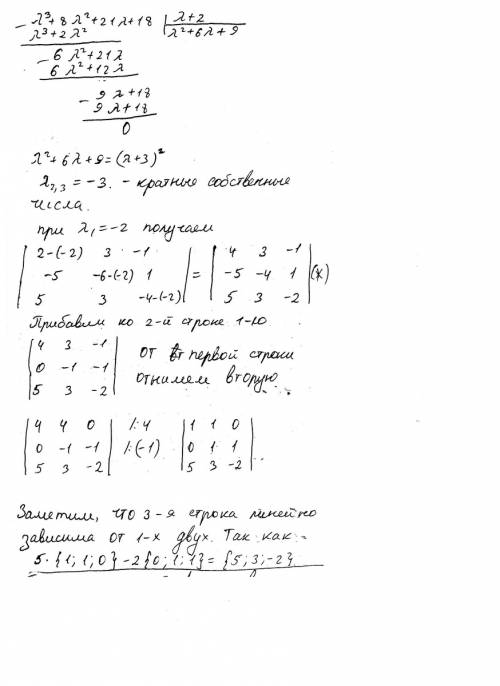 - λ³+8λ²+21λ+18 | λ+2
λ³+2λ² | λ²+6λ+9
- 6λ²+21λ
6λ²+12λ
- 9λ+18
9λ+18
0
λ²+6λ+9=(λ+3)²
λ₂,₃ = -3. - кратные собственные
числа.
при λ₁=-2 получаем
| 2-(-2) 3 -1 | = | 4 3 -1 | (*)
| -5 -6-(-2) 1 | | -5 -4 1 |
| 5 3 -4-(-2) | | 5 3 -2 |
Прибавим ко 2-й строке 1-ю
| 4 3 -1 | от первой строки
| 0 -1 -1 | отнимем вторую
| 5 3 -2 |
| 4 4 0 | /:4 | 1 1 0 |
| 0 -1 -1 | /:(-1) | 0 1 1 |
| 5 3 -2 | | 5 3 -2 |
Заметим, что 3-я строка линейно
зависима от 1-х двух. Так как
5·{1;1;0}-2{0;1;1}={5;3;-2}